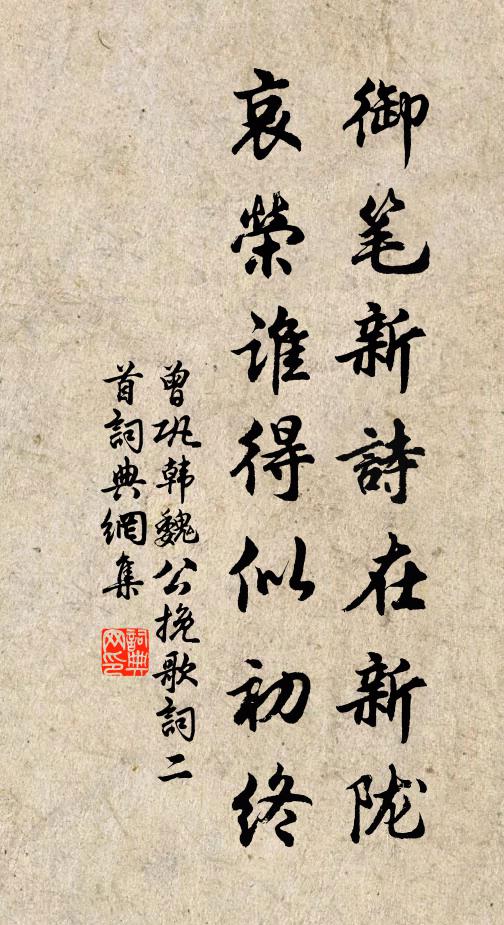 御笔新詩在新陇
哀榮誰得似初終
曾巩韩魏公挽歌詞二
首詞典網集
詞典
网印